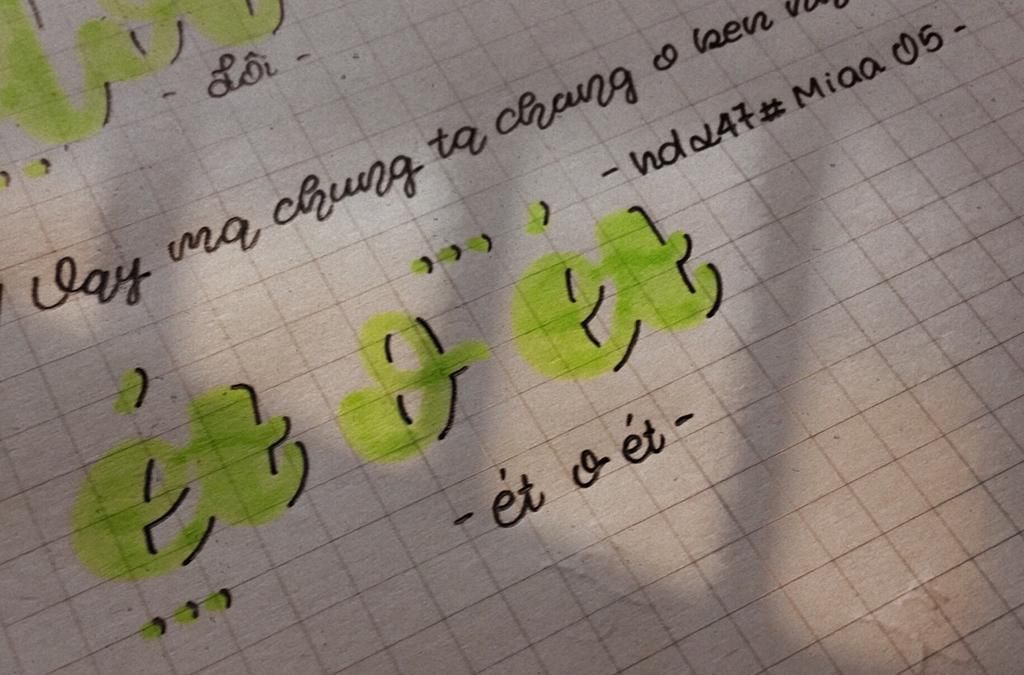 - Lôi -
Vay ma chung ta chang o ben
- nda247# Miaa 05 -
ét o ét
- ét o ét -